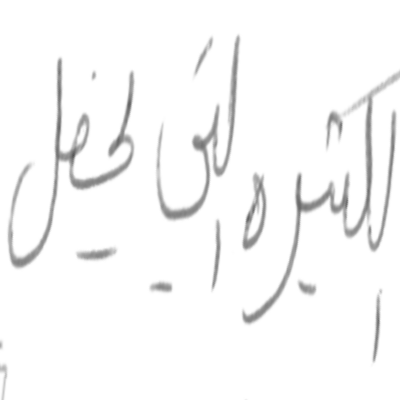 الكثيره التي يحصل